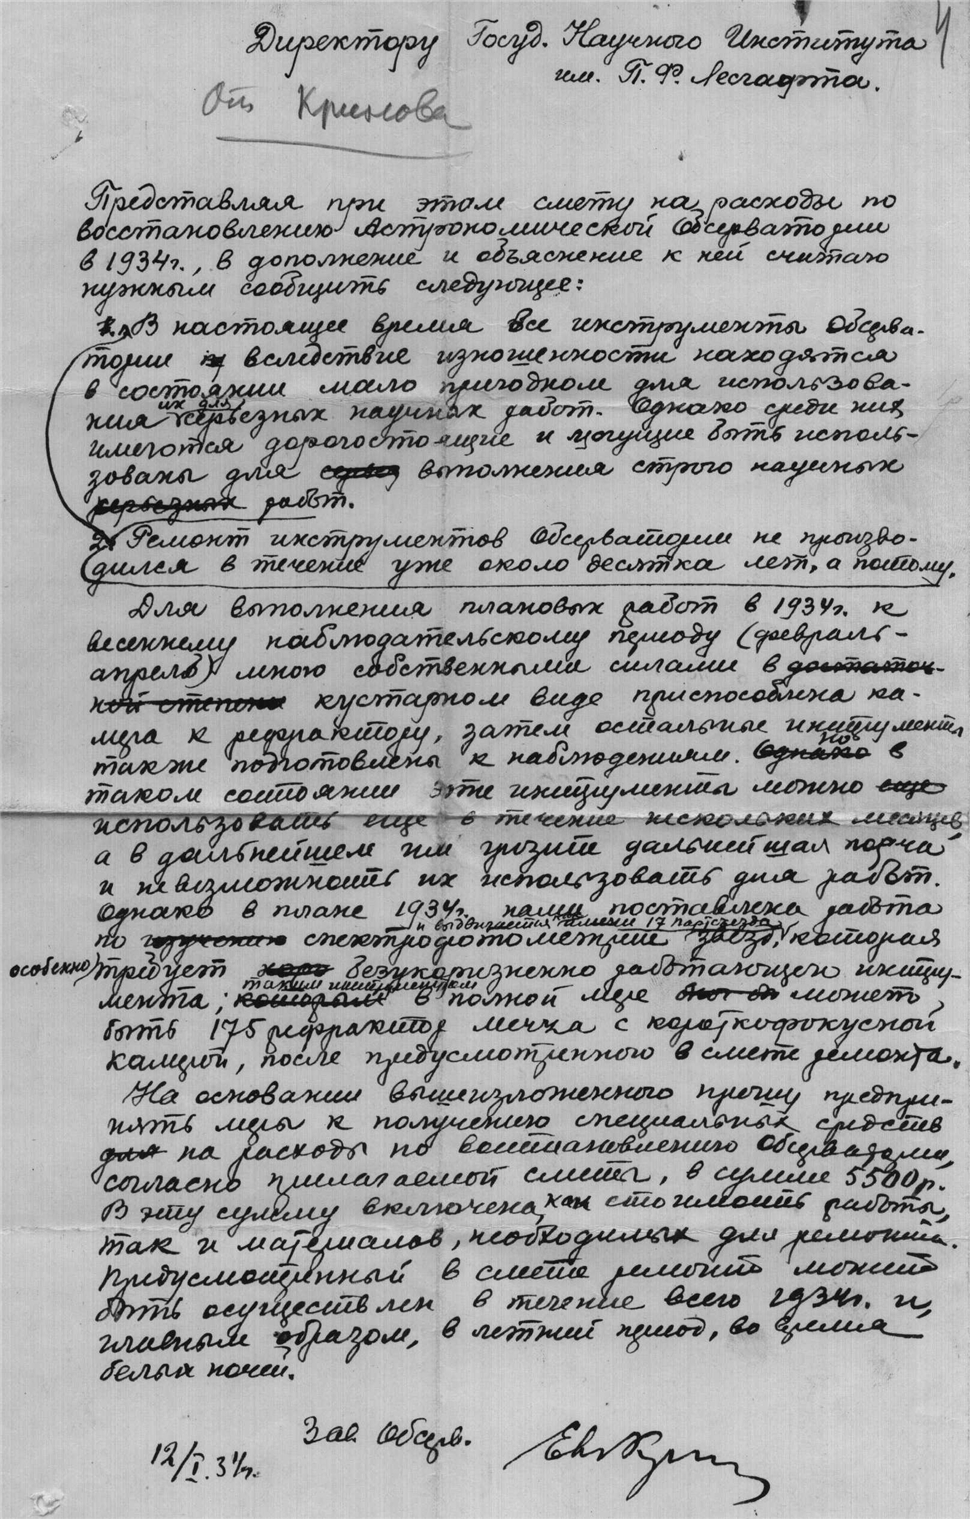 4
Директору Госуд. Научного Института
им. П. Ф. Лесгафта.
От Кринова
Представляя при этом смету на расходы по
восстановлению Астрономической Обсерватории
в 1934г., в дополнение и объяснение к ней считаю
нужным сообщить следующее:
1. В настоящее время все инструменты Обсерва-
тории вследствие изношенности находятся
в состоянии мало пригодном для использова-
ния их для серьезных научных работ. Однако среди них
имеются дорогостоящие и могущие быть исполь-
зованы для серьез выполнения строго научных
серьезных работ.
2. Ремонт инструментов Обсерватории не произво-
дился в течение уже около десятка лет, а потому.
Для выполнения плановых работ в 1934г. к
весеннему наблюдательскому периоду (февраль-
апрель) мною собственными силами в достаточ-
ной степени кустарном виде приспособлена ка-
мера к рефрактору, затем остальные инструменты
также подготовлены к наблюдениям. Однако но в
таком состоянии эти инструменты можно еще
использовать еще в течение нескольких месяцев,
а в дальнейшем им грозит дальнейшая порча
и невозможность их использовать для работ.
Однако в плане 1934г. нами поставлена работа
и выдвигается имени 17 партсъезда
по изучению спектрофотометрии звезд, которая
особенно требует хоро безукоризненно работающего инстру-
мента; которым таким инструментом в полной мере может
быть 175 рефрактор Мерца с короткофокусной
камерой, после предусмотренного в смете ремонта.
На основании вышеизложенного прошу предпри-
нять меры к получению специальных средств
для на расходы по восстановлению Обсерватории,
согласно прилагаемой сметы, в сумме 5500р.
В эту сумму включена, как стоимость работы,
так и материалов, необходимых для ремонта.
Предусмотренный в смете ремонт может
быть осуществлен в течение всего 1934г. и,
главным образом, в летний период, во время
белых ночей.
Зав. Обсерв.
12/I.34г.